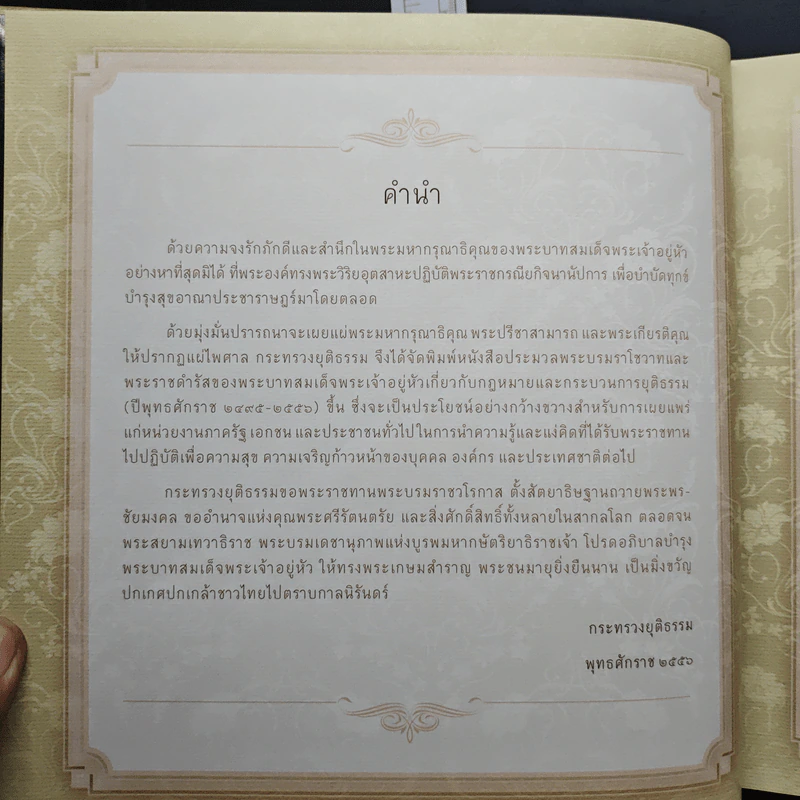 คำนำ
ด้วยความจงรักภักดีและสำนึกในพระมหากรุณาธิคุณของพระบาทสมเด็จพระเจ้าอยู่หัว
อย่างหาที่สุดมิได้ ที่พระองค์ทรงพระวิริยอุตสาหะปฏิบัติพระราชกรณียกิจนานัปการ เพื่อบำบัดทุกข์
บำรุงสุขอาณาประชาราษฎร์มาโดยตลอด
ด้วยมุ่งมั่นปรารถนาจะเผยแผ่พระมหากรุณาธิคุณ พระปรีชาสามารถ และพระเกียรติคุณ
ให้ปรากฏแผ่ไพศาล กระทรวงยุติธรรม จึงได้จัดพิมพ์หนังสือประมวลพระบรมราโชวาทและ
พระราชดำรัสของพระบาทสมเด็จพระเจ้าอยู่หัวเกี่ยวกับกฎหมายและกระบวนการยุติธรรม
(ปีพุทธศักราช ๒๔๙๕-๒๕๕๖) ขึ้น ซึ่งจะเป็นประโยชน์อย่างกว้างขวางสำหรับการเผยแพร่
แก่หน่วยงานภาครัฐ เอกชน และประชาชนทั่วไป ในการนำความรู้และแง่คิดที่ได้รับพระราชทาน
ไปปฏิบัติเพื่อความสุข ความเจริญก้าวหน้าของบุคคล องค์กร และประเทศชาติต่อไป
กระทรวงยุติธรรมขอพระราชทานพระบรมราชวโรกาส ตั้งสัตยาธิษฐานถวายพระพร-
ชัยมงคล ขออำนาจแห่งคุณพระศรีรัตนตรัย และสิ่งศักดิ์สิทธิ์ทั้งหลายในสากลโลก ตลอดจน
พระสยามเทวาธิราช พระบรมเดชานุภาพแห่งบูรพมหากษัตริยาธิราชเจ้า โปรดอภิบาลบำรุง
พระบาทสมเด็จพระเจ้าอยู่หัว ให้ทรงพระเกษมสำราญ พระชนมายุยิ่งยืนนาน เป็นมิ่งขวัญ
ปกเกศปกเกล้าชาวไทยไปตราบกาลนิรันดร์
กระทรวงยุติธรรม
พุทธศักราช ๒๕๕๖